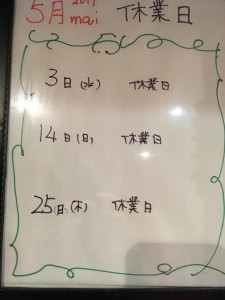 5月 2017 mai 休業日
3日(水) 休業日
14日(日) 休業日
25日(木) 休業日